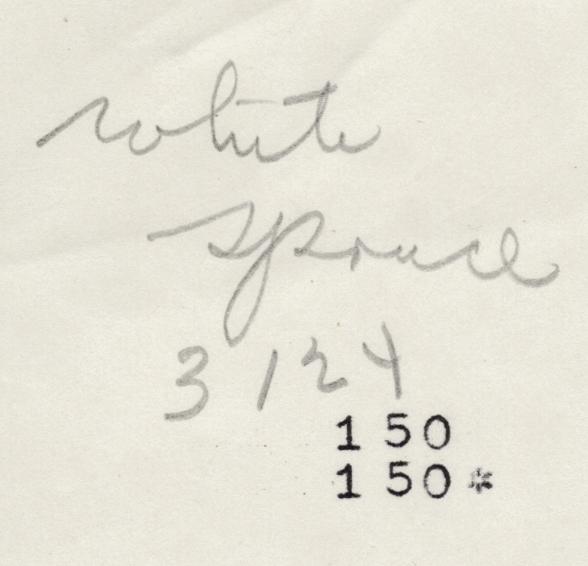 white
spruce
3 124
150
150*